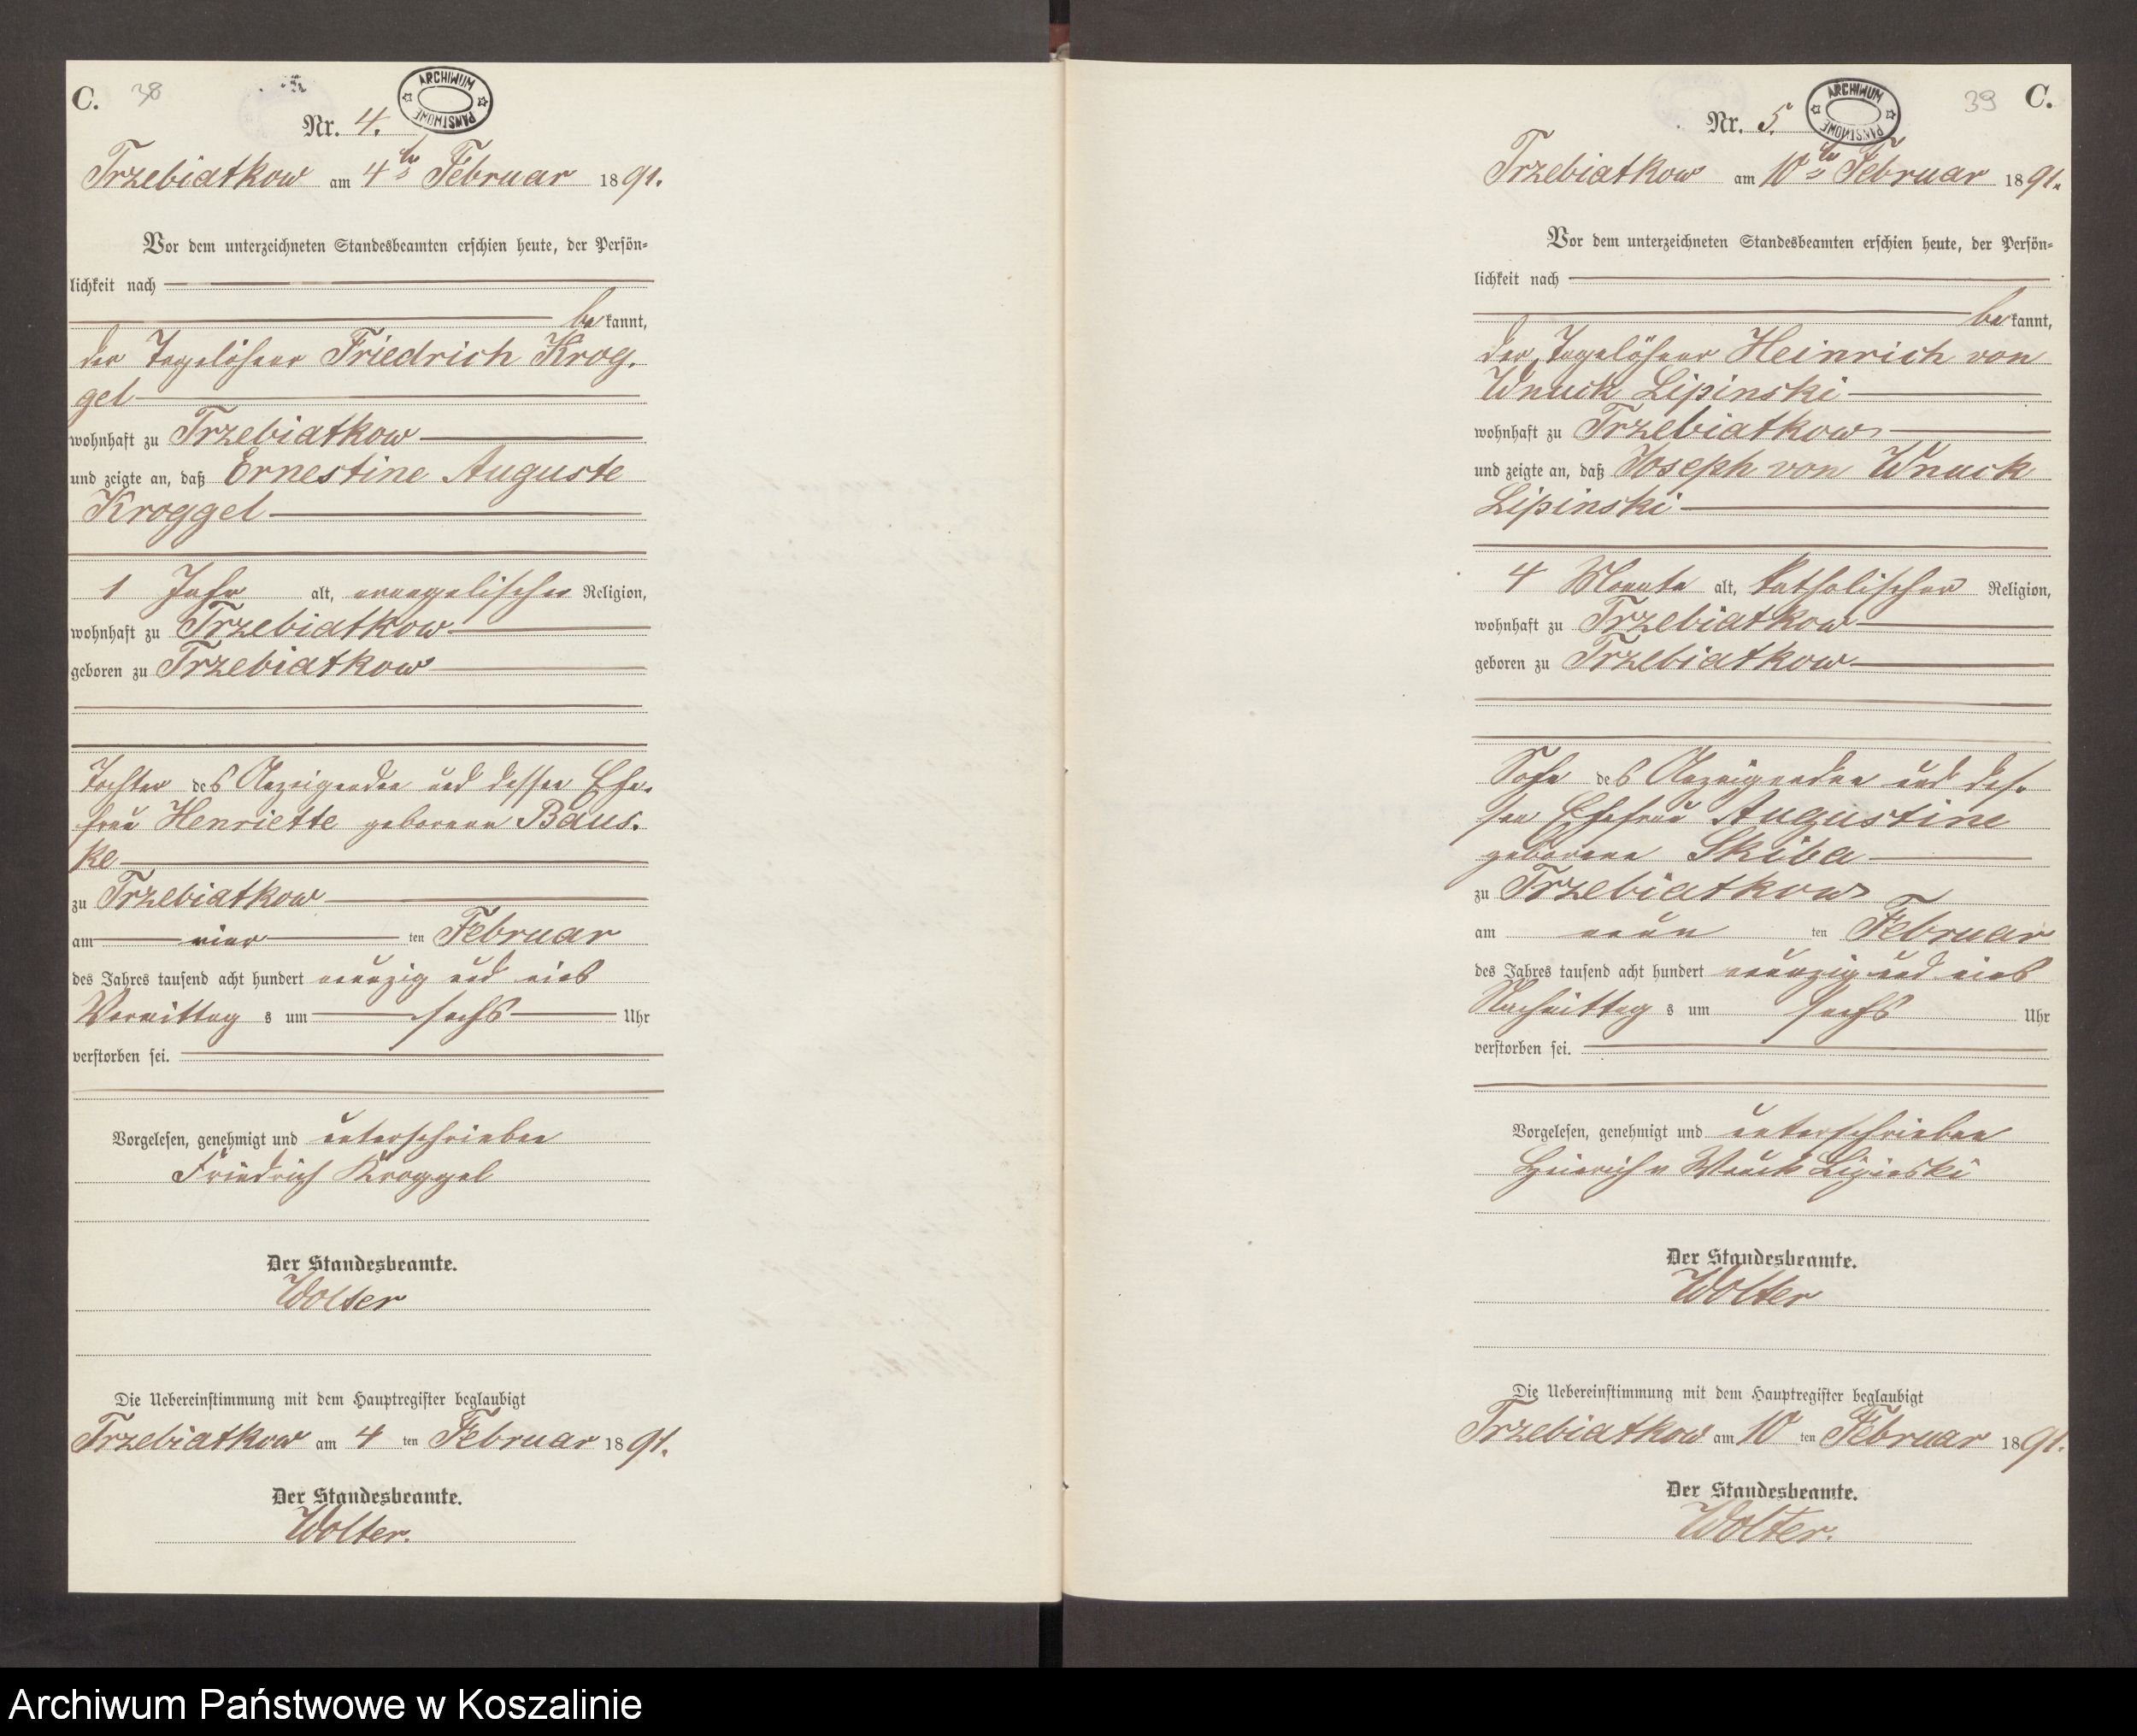 C. 38
ARCHIWUM PAŃSTWOWE
Nr. 4.
Trzebiatkow am 4ten Februar 1891.
Vor dem unterzeichneten Standesbeamten erschien heute, der Persön-
lichkeit nach
bekannt,
der Tagelöhner Friedrich Krog-
gel
wohnhaft zu Trzebiatkow
und zeigte an, daß Ernestine Auguste
Kroggel
1 Jahr alt, evangelischer Religion,
wohnhaft zu Trzebiatkow
geboren zu Trzebiatkow
Tochter des Anzeigenden und dessen Ehe-
frau Henriette geborene Baus-
ke
zu Trzebiatkow
am vier ten Februar
des Jahres tausend acht hundert neunzig und eins
Vormittag s um sechs Uhr
verstorben sei.
Vorgelesen, genehmigt und unterschrieben
Friedrich Kroggel
Der Standesbeamte.
Wolter
Die Uebereinstimmung mit dem Hauptregister beglaubigt
Trzebiatkow am 4 ten Februar 1891.
Der Standesbeamte.
Wolter.
39 C.
ARCHIWUM PAŃSTWOWE
Nr. 5.
Trzebiatkow am 10ten Februar 1891.
Vor dem unterzeichneten Standesbeamten erschien heute, der Persön-
lichkeit nach
bekannt,
der Tagelöhner Heinrich von
Wnuck Lipinski
wohnhaft zu Trzebiatkow
und zeigte an, daß Joseph von Wnuck
Lipinski
4 Monate alt, katholischer Religion,
wohnhaft zu Trzebiatkow
geboren zu Trzebiatkow
Sohn des Anzeigenden und des-
sen Ehefrau Augustine
geborene Skiba
zu Trzebiatkow
am neun ten Februar
des Jahres tausend acht hundert neunzig und eins
Nachmittag s um sechs Uhr
verstorben sei.
Vorgelesen, genehmigt und unterschrieben
Heinrich v Wnuck Lipinski
Der Standesbeamte.
Wolter
Die Uebereinstimmung mit dem Hauptregister beglaubigt
Trzebiatkow am 10 ten Februar 1891.
Der Standesbeamte.
Wolter.
Archiwum Państwowe w Koszalinie